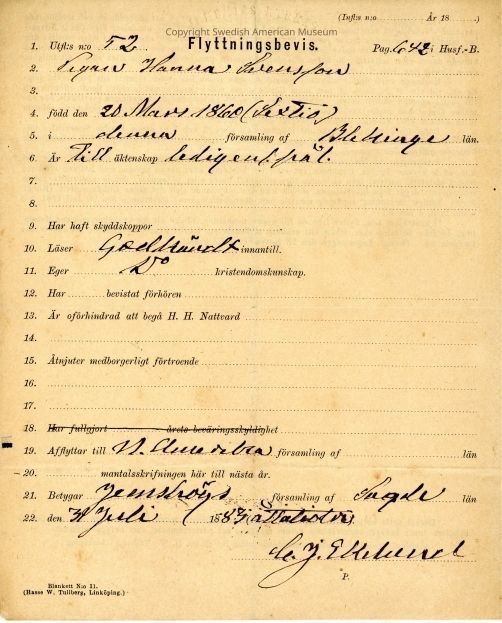 Copyright Swedish American Museum
(Infk:s n:o År 18 )
1. Utfk:s n:o 72. Flyttningsbevis. Pag. 642 i Husf.-B.
2. Pigan Hanna Svensson
3.
4. född den 20 Mars 1860 (Sextio)
5. i denna församling af Blekinge län.
6. Är till äktenskap ledig
7.
8.
9. Har haft skyddskoppor
10. Läser Godkändt innantill.
11. Eger Do kristendomskunskap.
12. Har bevistat förhören
13. Är oförhindrad att begå H. H. Nattvard
14.
15. Åtnjuter medborgerligt förtroende
16.
17.
18. Har fullgjort årets beväringsskyldighet
19. Afflyttar till N. Amerika församling af län
20. mantalsskrifningen här till nästa år.
21. Betygar Jemshögs församling af län
22. den Juli 1883
C. J. Eklund
P.
Blankett N:o 11.
(Hasse W. Tullberg, Linköping.)